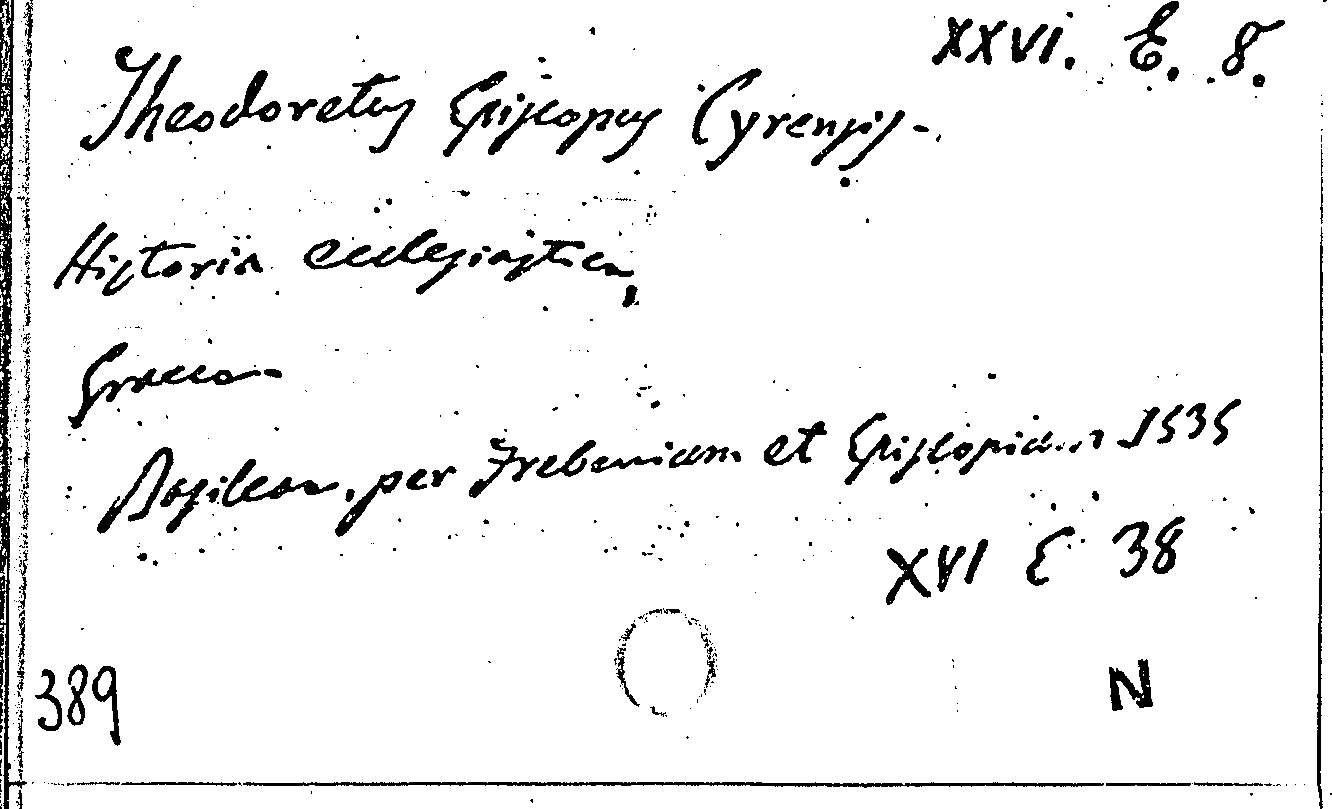 XXVI. E. 8.
Theodoretus Episcopus Cyrensis.
Historia ecclesiastica,
Graece.
Basileae, per Frobenium et Episcopium 1535
XVI E 38
389
N